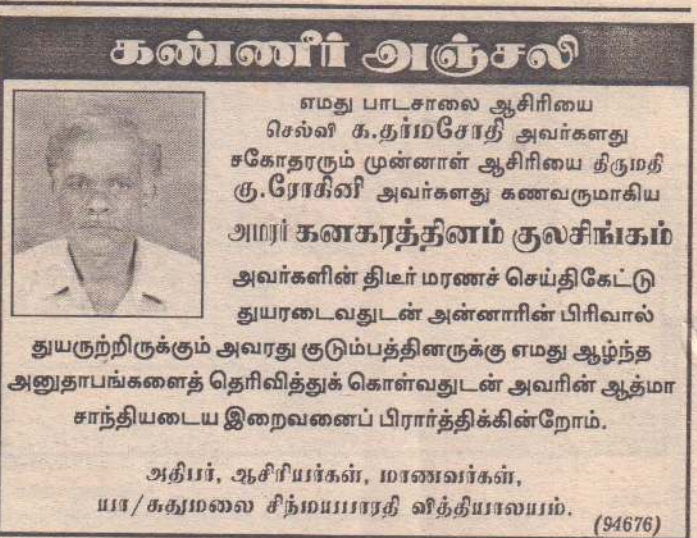 கண்ணீர் அஞ்சலி
எமது பாடசாலை ஆசிரியை
செல்வி க.தர்மசோதி அவர்களது
சகோதரரும் முன்னாள் ஆசிரியை திருமதி
கு.ரோகினி அவர்களது கணவருமாகிய
அமரர் கனகரத்தினம் குலசிங்கம்
அவர்களின் திடீர் மரணச் செய்திகேட்டு
துயரடைவதுடன் அன்னாரின் பிரிவால்
துயருற்றிருக்கும் அவரது குடும்பத்தினருக்கு எமது ஆழ்ந்த
அனுதாபங்களைத் தெரிவித்துக் கொள்வதுடன் அவரின் ஆத்மா
சாந்தியடைய இறைவனைப் பிரார்த்திக்கின்றோம்.
அதிபர், ஆசிரியர்கள், மாணவர்கள்,
யா/சுதுமலை சிந்மயபாரதி வித்தியாலயம்.
(94676)